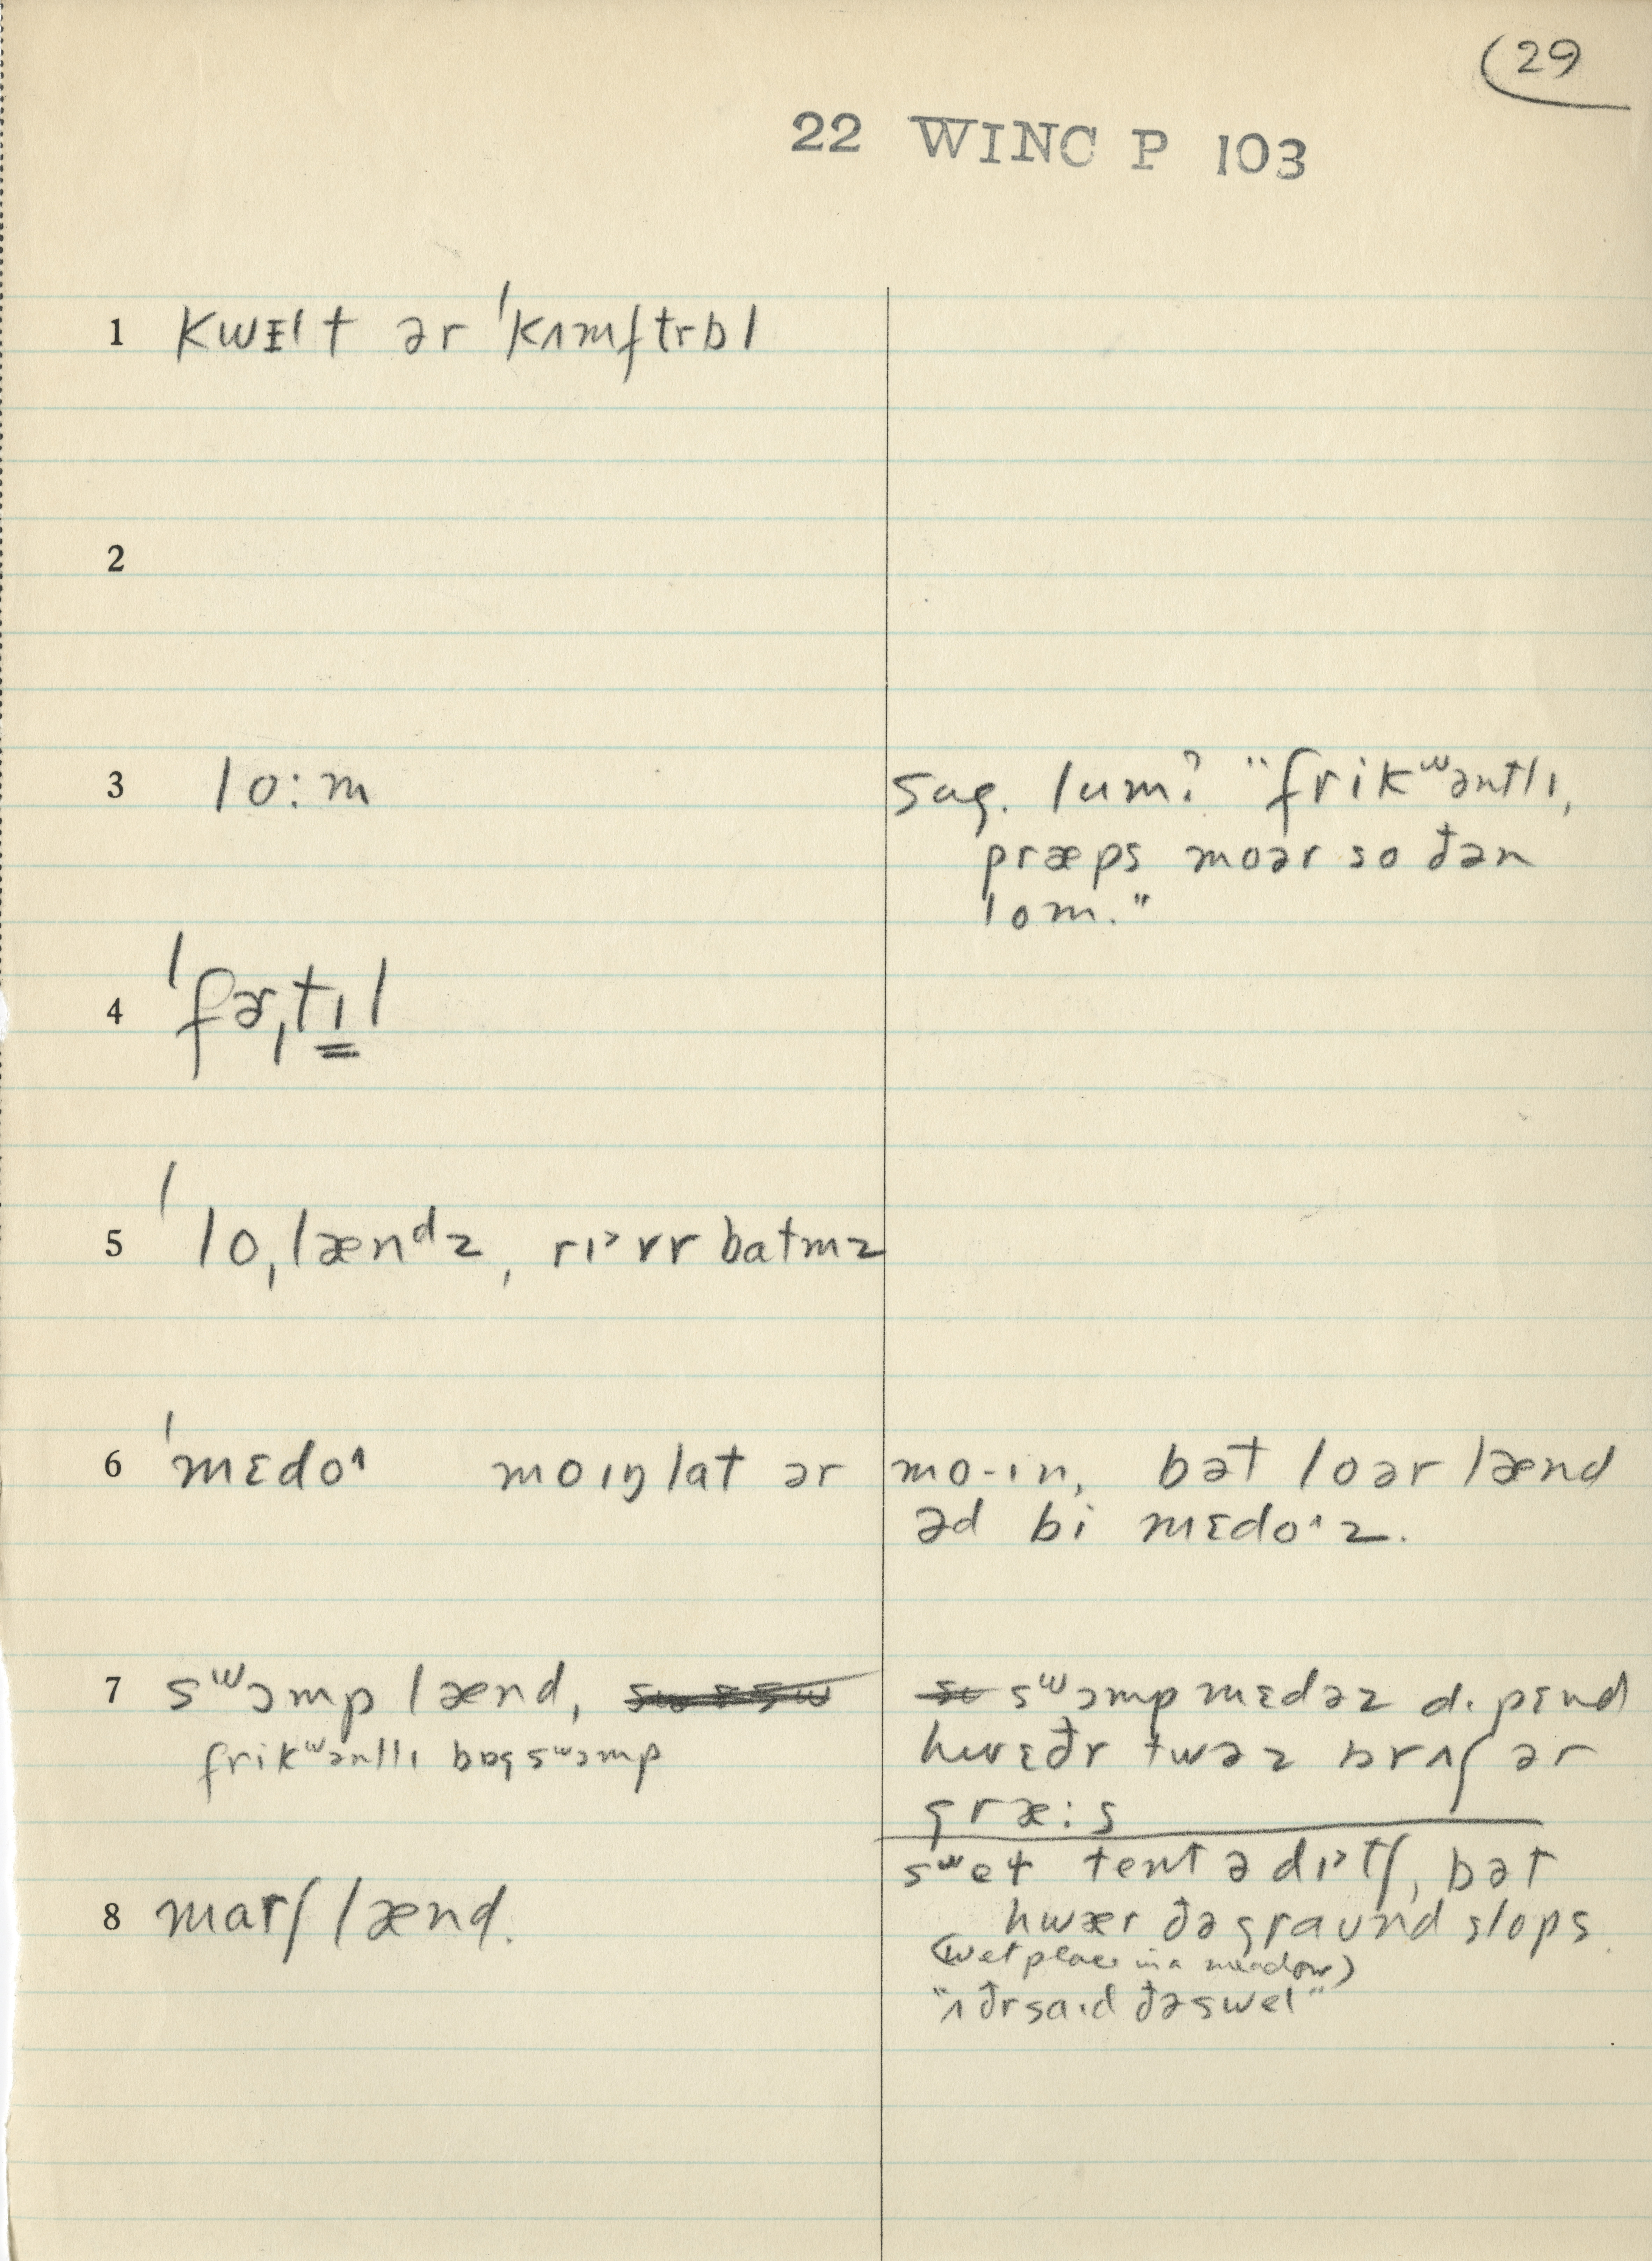 (29
22 WINC P 103
1 kwɪlt ər ˈkʌmftrbl
2
3 lo:m
sug. lum? "frikʷəntlɪ,
præps moər so ðən
lom."
4 ˈfɚˌtɪl
5 ˈloˌlænᵈz, rɪ˃vr batmz
6 ˈmɛdo˄ moɪŋ lat ər mo-ɪn, bət loər lænd
əd bi mɛdo˄z.
7 sʷɔmp lænd,
frikʷəntlɪ bɒg sʷɔmp
sʷɔmp mɛdəz dɪpɛnd
hwɛðr twəz brʌʃ ər
græ:s
8 marʃ lænd.
sʷet tent ə dɪ˃tʃ, bət
hwær ðə graund slops.
(wet place in a meadow)
"ʌðr saɪd ðə swel"